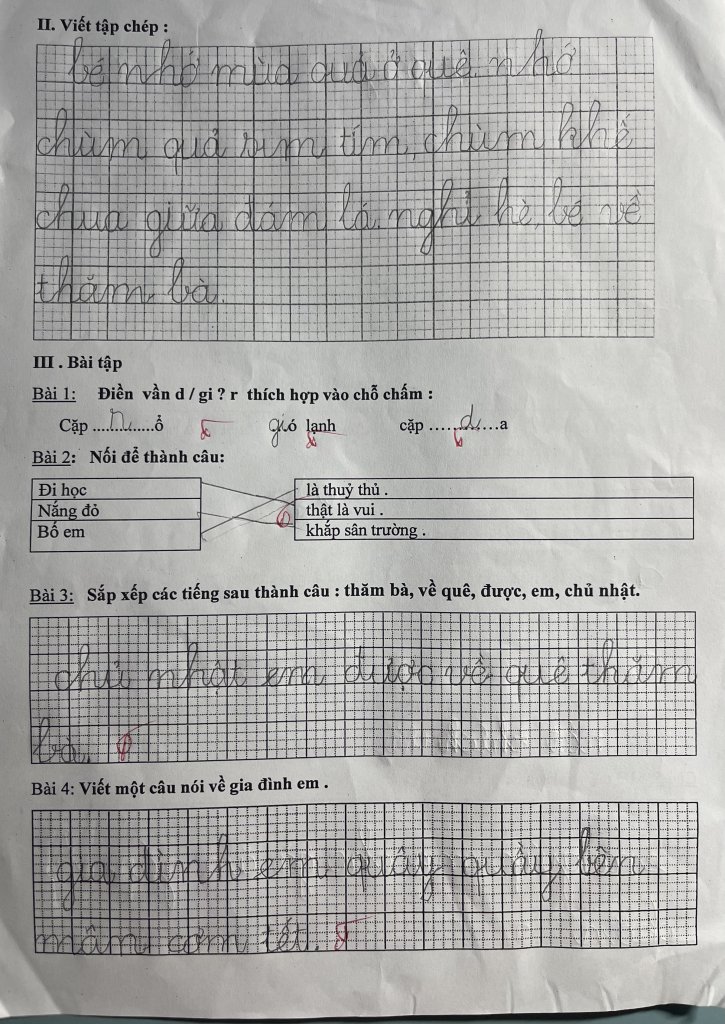 II. Viết tập chép :
bé nhớ mùa quả ở quê. nhớ
chùm quả sim tím, chùm khế
chua giữa đám lá. nghỉ hè, bé về
thăm bà.
III . Bài tập
Bài 1: Điền vần d / gi ? r thích hợp vào chỗ chấm :
Cặp ......r......ổ gió lạnh cặp ......d......a
Bài 2: Nối để thành câu:
Đi học là thuỷ thủ .
Nắng đỏ thật là vui .
Bố em khắp sân trường .
Bài 3: Sắp xếp các tiếng sau thành câu : thăm bà, về quê, được, em, chủ nhật.
chủ nhật em được về quê thăm
bà.
Bài 4: Viết một câu nói về gia đình em .
gia đình em quây quầy bên
mâm cơm tết.